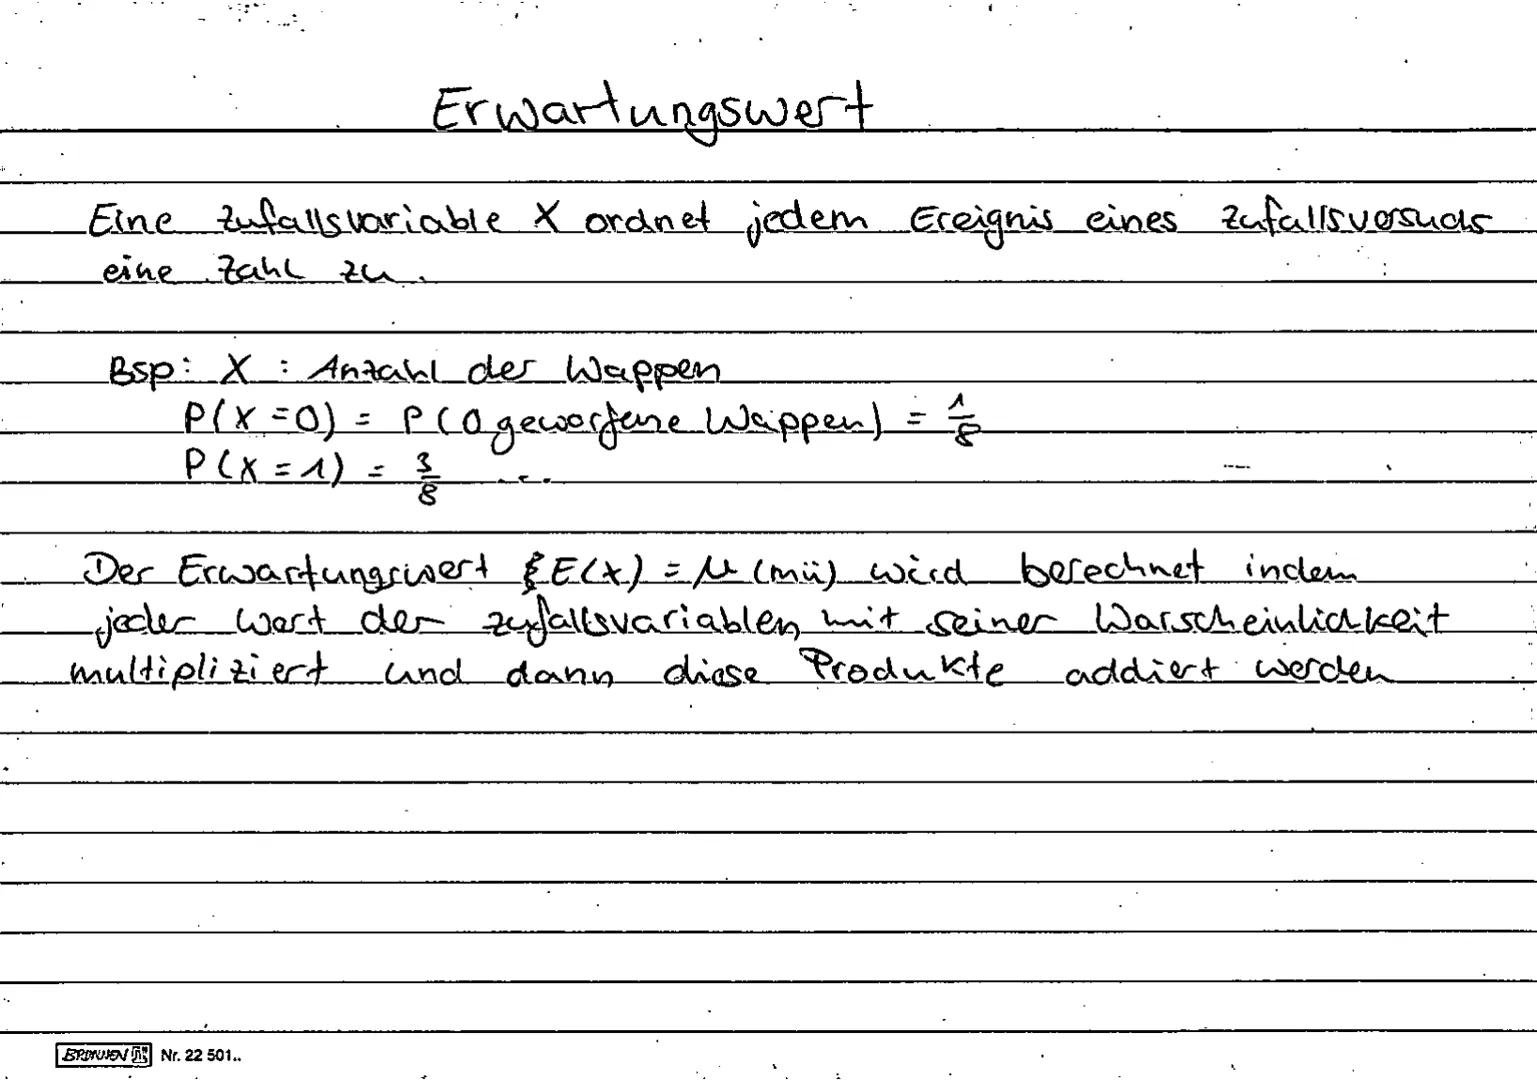 Erwartungswert
Eine Zufallsvariable X ordnet jedem Ereignis eines Zufallsversuchs
eine Zahl zu.
Bsp: X : Anzahl der Wappen
P(X=0) = P(0 geworfene Wappen) = 1/8
P(X=1) = 3/8 ...
Der Erwartungswert E(X) = μ (mü) wird berechnet indem
jeder Wert der Zufallsvariablen mit seiner Warscheinlichkeit
multipliziert und dann diese Produkte addiert werden
BRUNNEN Nr. 22 501..